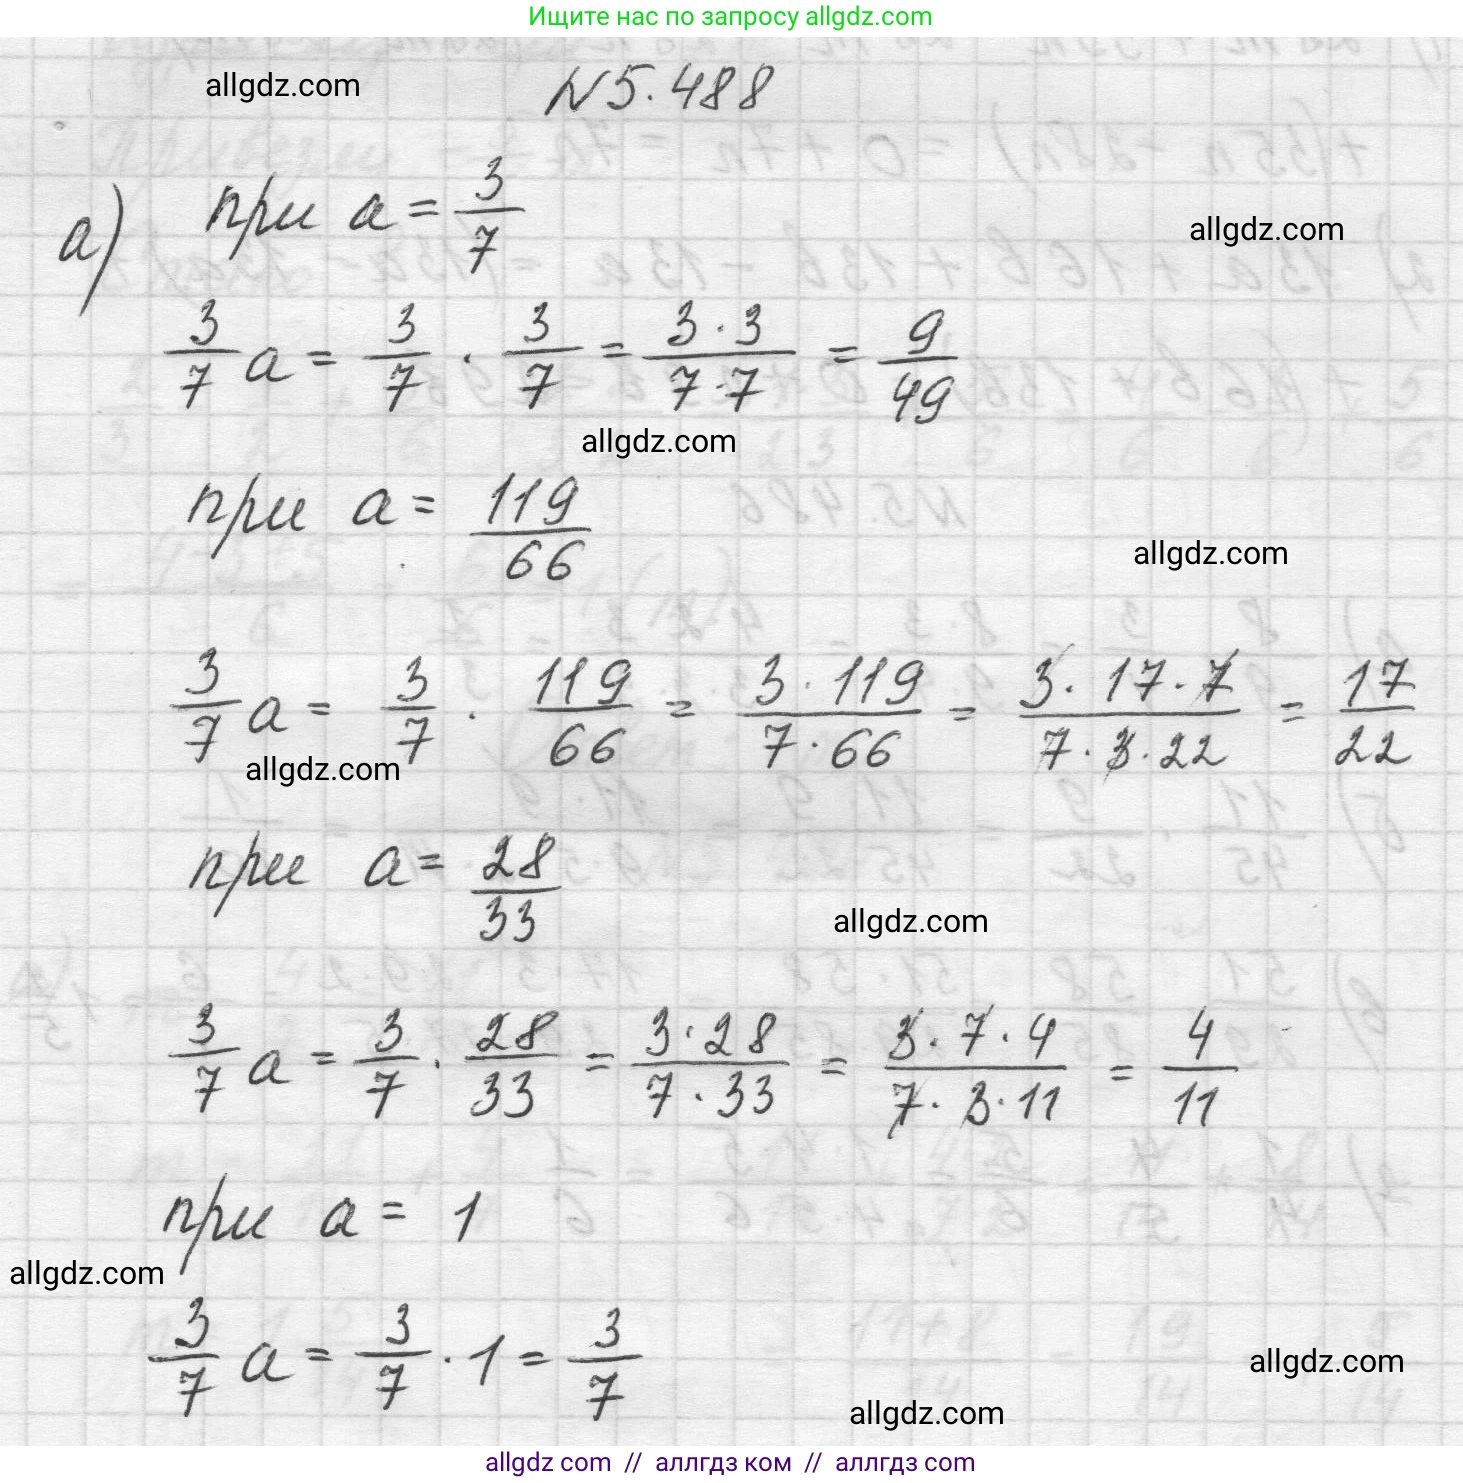 Ищите нас по запросу allgdz.com
allgdz.com
№5.488
allgdz.com
а) при a = 3/7
3/7 a = 3/7 · 3/7 = 3·3/7·7 = 9/49
allgdz.com
при a = 119/66
allgdz.com
3/7 a = 3/7 · 119/66 = 3·119/7·66 = 3·17·7/7·3·22 = 17/22
allgdz.com
при a = 28/33
allgdz.com
3/7 a = 3/7 · 28/33 = 3·28/7·33 = 3·7·4/7·3·11 = 4/11
при a = 1
allgdz.com
3/7 a = 3/7 · 1 = 3/7
allgdz.com
allgdz.com
allgdz com // аллгдз ком // аллгдз com